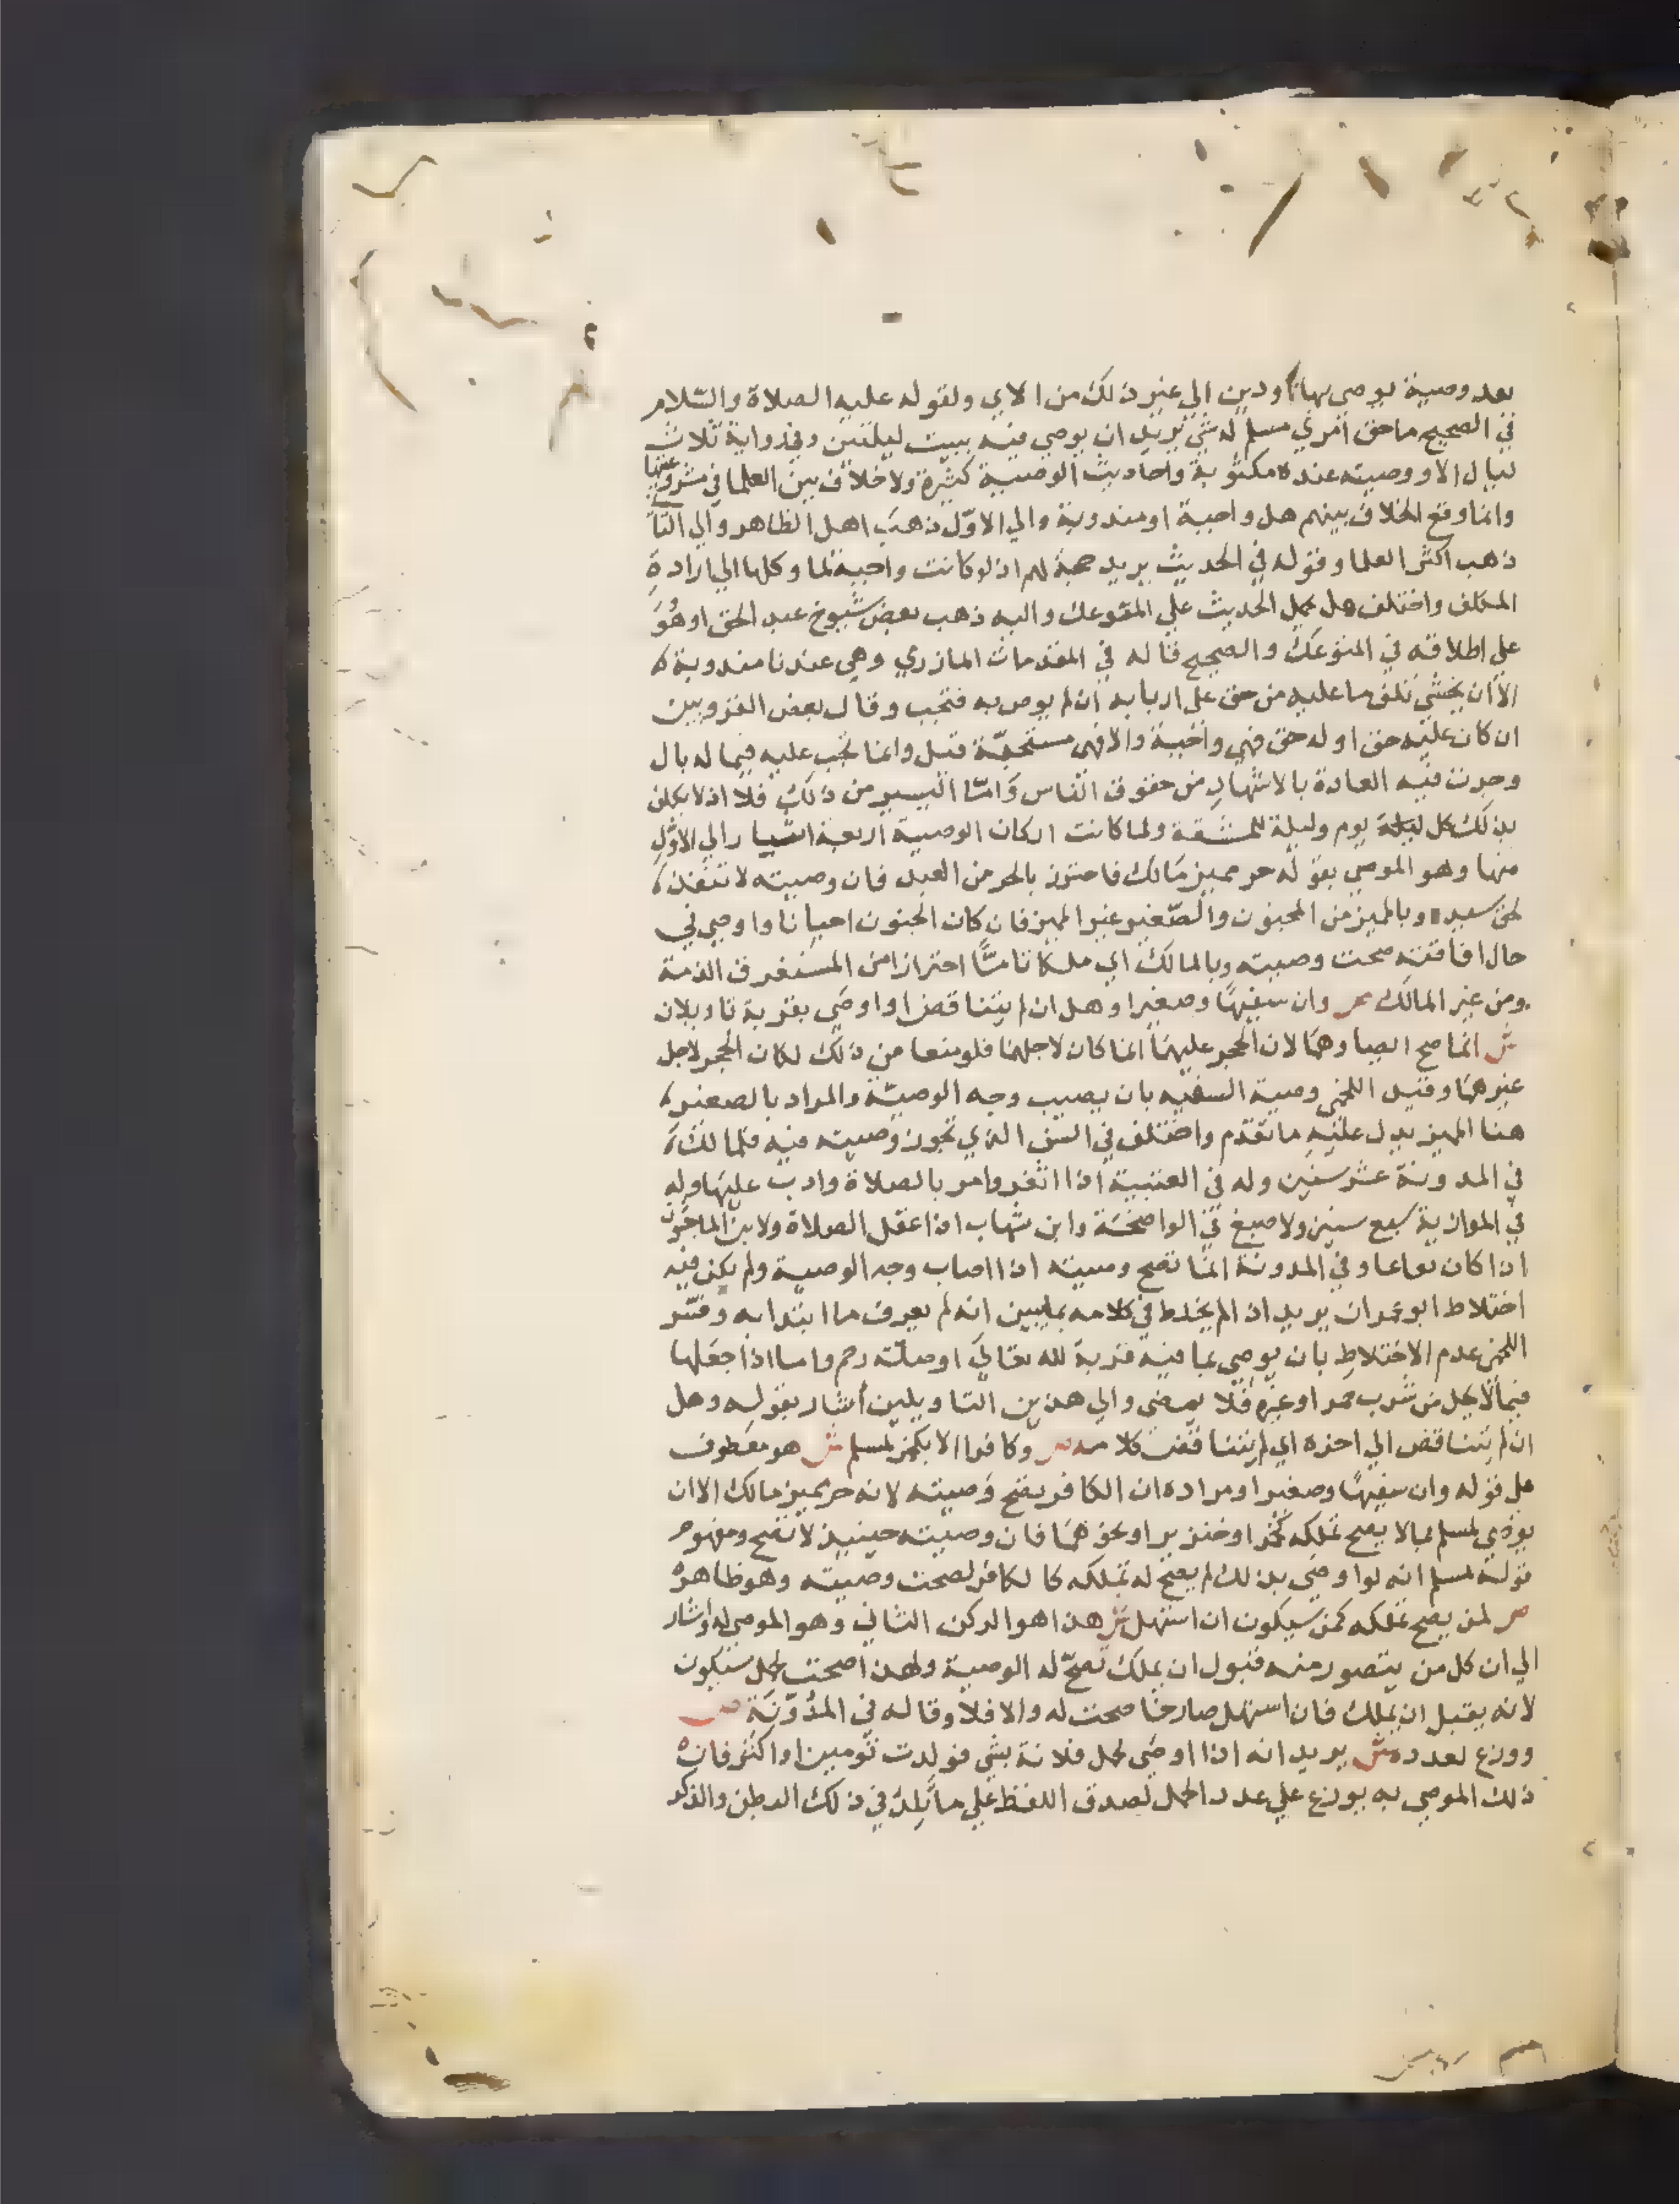 بعد وصية يوصي بها او دين الي غير ذلك من الاي ولقوله عليه الصلاة والسّلام
في الصحيح ما حق امري مسلم له شي يريد ان يوصي فيه يبيت ليلتين وفي رواية ثلاث
ليال الا ووصيته عنده مكتوبة واحاديث الوصية كثيرة ولا خلاف بين العلما في مشروعيتها
وانما وقع الخلاف بينهم هل واجبة او مندوبة والي الاوّل ذهب اهل الظاهر والي الثا
ذهب اكثر العلما وقوله في الحديث يريد حجة لهم اذ لو كانت واجبة لما وكلها الي ارادة
المكلف واختلف هل يحمل الحديث علي الموعك واليه ذهب بعض شيوخ عبد الحق او هُوَ
علي اطلاقه في الموعك والصحيح قاله في المقدمات المازري وهي عندنا مندوبة
الا ان يخشي تلف ما عليه من حق علي اربابه ان لم يوص به فتجب وقال بعض القرويين
ان كان عليه حق او له حق فهي واجبة والا فهي مستحبّة قيل وانما تجب عليه فيما له بال
وجرت فيه العادة بالاشهاد من حقوق الناس وَامّا اليسير من ذلك فلا اذ لا يكلف
بذلك كل ليلة يوم وليلة للمشقة ولما كانت اركان الوصية اربعة اشار الي الاوّلِ
منها وهو الموصي بقوله حر مميز مَالك فاحترز بالحر من العبد فان وصيته لا تنفذ
لحق سيده وبالمميز من المجنون والصّغير غير المميز فان كان الجنون احيانا واوصي في
حال افاقته صحت وصيته وبالمالك اي ملكا تامًّا احترازا من المستغرق الذمة
ومن غير المالك ص وان سفيهًا وصغيرا وهل ان لم يتناقض او اوصَي بقربة تاويلان
ش انما صح ايصاوهمَا لان الحجر عليهمَا انما كان لاجلهما فلو منعا من ذلك لكان الحجر لاجل
غيرهمَا وقيد اللخمي وصية السفيه بان يصيب وجه الوصيّة والمراد بالصغير
هنا المميز يدل عليه ما تقدّم واختلف في السن الذي تجوز وصيته فيه فلمالك
في المدونة عشر سنين وله في العتبية اذا اثغر وامر بالصلاة وادب عليهَا وله
في الموازية سبع سنين ولاصبغ في الواضحَة وابن شهاب اذا عقل الصلاة ولابن الماجَشون
اذا كان يفاعا وفي المدونة انما تصح وصيته اذا اصاب وجه الوصية ولم يكن فيه
اختلاط ابو عمران يريد اذا لم يخلط في كلامه بما يبين انه لم يعرف ما ابتدا به وفسّر
اللخمي عدم الاختلاطِ بان يوصي بما فيه قربة لله تعالي او صلّة رحم واما اذا جعَلها
فيما لا يحل من شرب خمر او غيره فلا يمضي والي هذين التاويلين اشار بقوله وهل
ان لم يتناقض الي اخره اي لم يتناقض كلامه ص وكافرا الا بكخمر لمسلم ش هو معطوف
علي قوله وان سفيهًا وصغيرا ومراده ان الكافر يصح وَصيته لانه حر مميز مالك الا ان
يوصي لمسلم بما لا يصح تملكه كخمر او خنزير او نحوهمَا فان وصيته حينيذ لا تصح ومفهوم
قوله لمسلم انه لو اوصَي بذلك لم يصح له تملكه كالكافر لصحت وصيته وهو ظاهره
ص لمن يصح تملكه كمن سيكون ان استهل ش هذا هو الركن الثاني وهو الموصي له واشار
الي ان كل من يتصور منه قبول ان يملك تصحّ له الوصية ولهذا صحت لحمل سيكون
لانه يقبل ان يملك فان استهل صارخا صحت له والا فلا وقاله في المدوّنَة ص
ووزع لعدده ش يريد انه اذا اوصَي لحمل فلانة بشي فولدت تومين او اكثر فان
ذلك الموصي به يوزع علي عدد الحمل لصدق اللفظ علي ما يلد في ذلك البطن والذكر